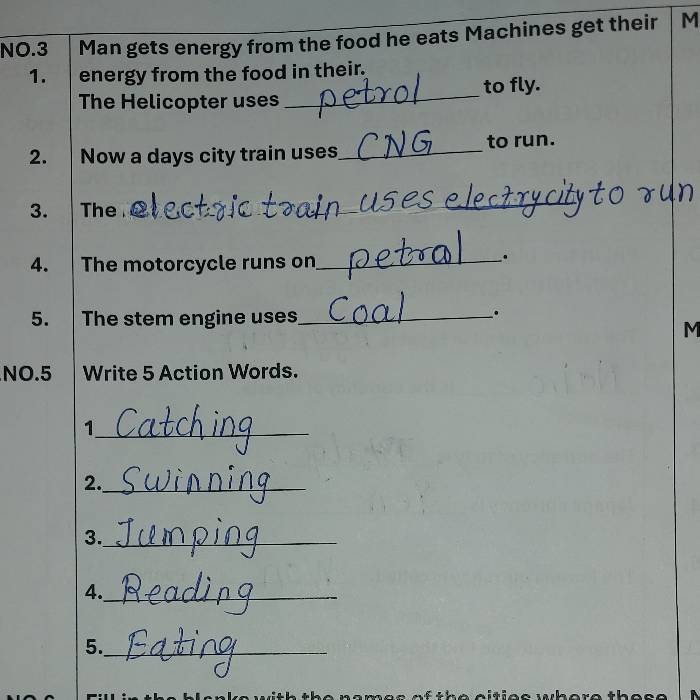 NO.3 Man gets energy from the food he eats Machines get their M
1. energy from the food in their.
The Helicopter uses petrol to fly.
2. Now a days city train uses CNG to run.
3. The electric train uses electrycity to run
4. The motorcycle runs on petral.
5. The stem engine uses Coal.
M
NO.5 Write 5 Action Words.
1 Catching
2. Swinning
3. Jumping
4. Reading
5. Eating
Fill in the blanks with the names of the cities where these